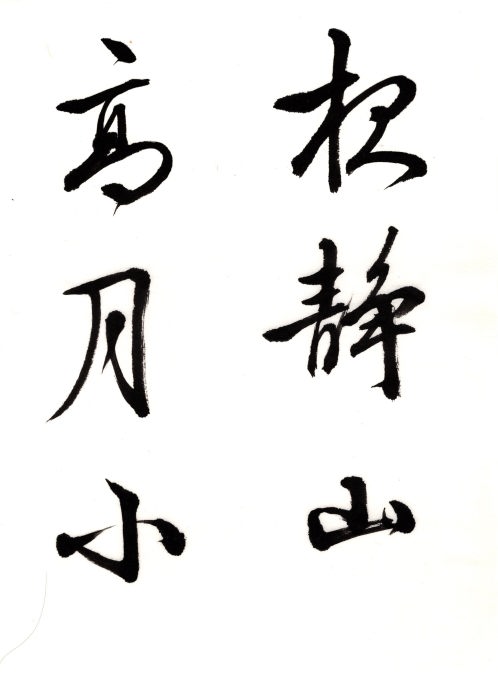 夜静山
高月小